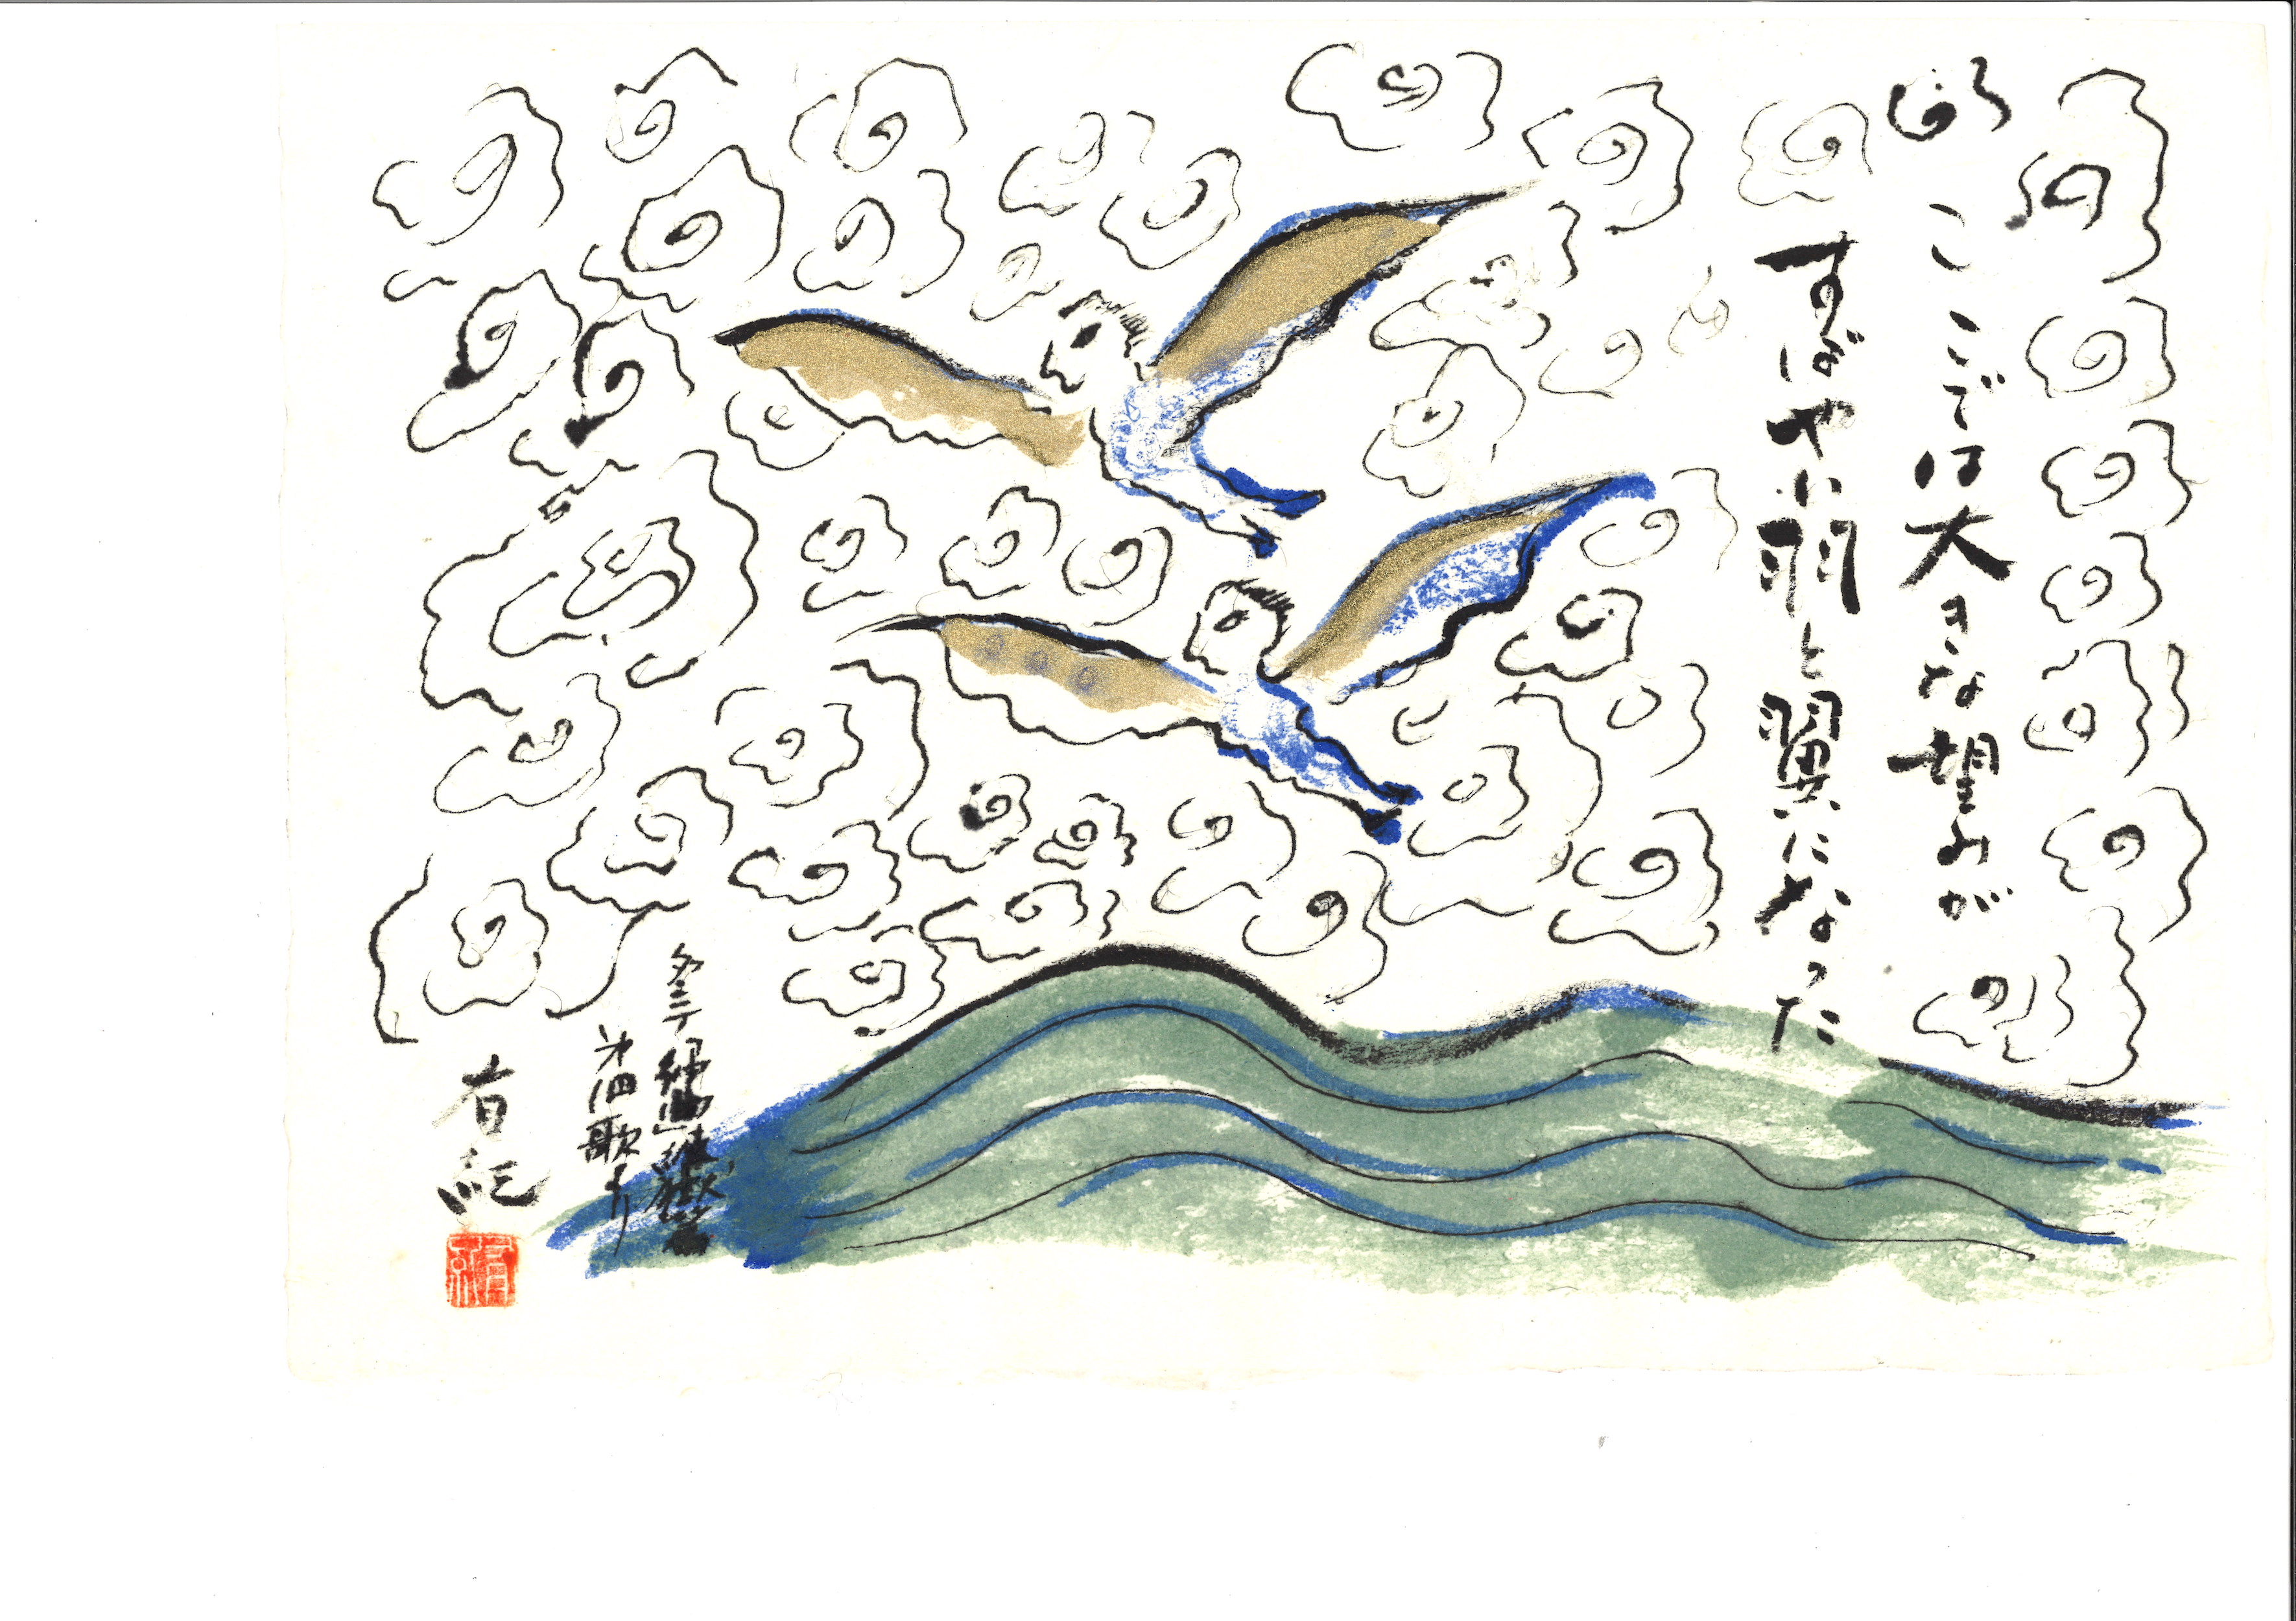 ここでは大きな望みが
すばやい羽と翼になった
第四歌より
有紀